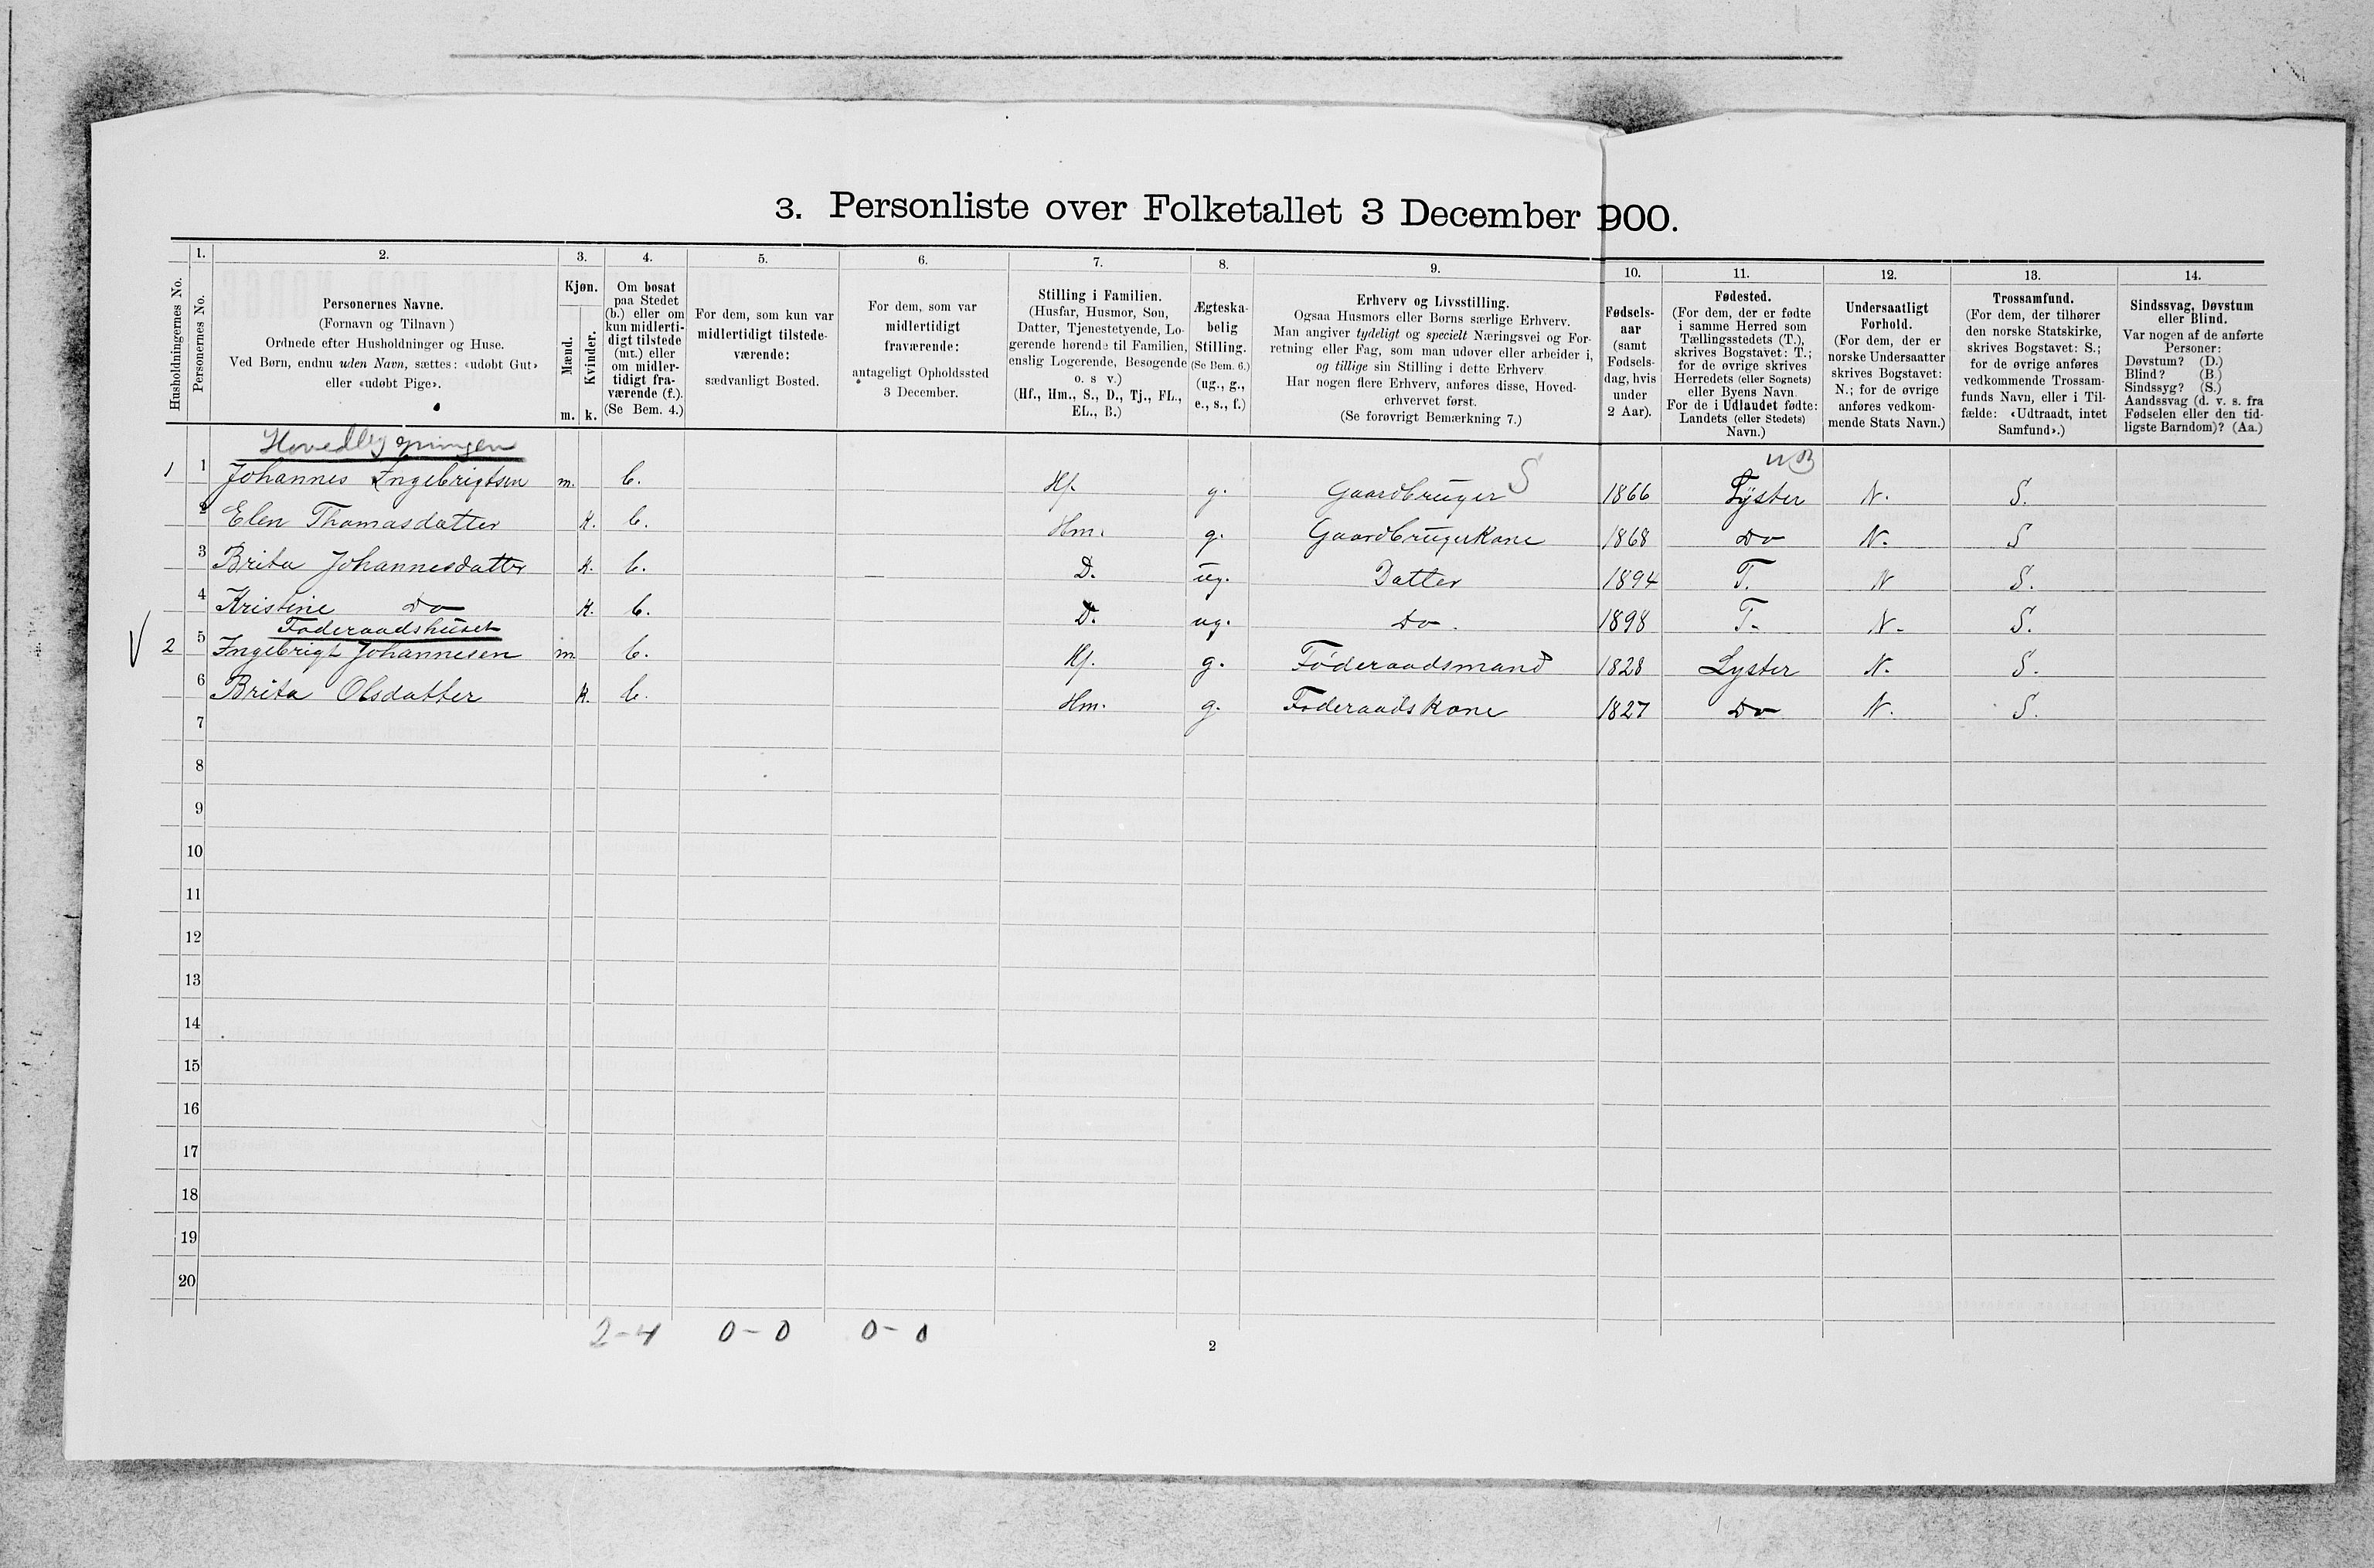 3. Personliste over Folketallet 3 December 1900.
1. 2. 3. 4. 5. 6. 7. 8. 9. 10. 11. 12. 13. 14.
Husholdningernes No.
Personernes No.
Personernes Navne.
(Fornavn og Tilnavn )
Ordnede efter Husholdninger og Huse.
Ved Børn, endnu uden Navn, sættes: «udøbt Gut»
eller «udøbt Pige».
Kjøn.
Mænd.
Kvinder.
m. k.
Om bosat
paa Stedet
(b.) eller om
kun midlerti-
digt tilstede
(mt.) eller
om midler-
tidigt fra-
værende (f.).
(Se Bem. 4.)
For dem, som kun var
midlertidigt tilstede-
værende:
sædvanligt Bosted.
For dem, som var
midlertidigt
fraværende:
antageligt Opholdssted
3 December.
Stilling i Familien.
(Husfar, Husmor, Søn,
Datter, Tjenestetyende, Lo-
gerende hørende til Familien,
enslig Logerende, Besøgende
o. s v.)
(Hf., Hm., S., D., Tj., FL.,
EL., B.)
Ægteska-
belig
Stilling.
(Se Bem. 6.)
(ug., g.,
e., s., f.)
Erhverv og Livsstilling.
Ogsaa Husmors eller Børns særlige Erhverv.
Man angiver tydeligt og specielt Næringsvei og For-
retning eller Fag, som man udøver eller arbeider i,
og tillige sin Stilling i dette Erhverv
Har nogen flere Erhverv, anføres disse, Hoved-
erhvervet først.
(Se forøvrigt Bemærkning 7.)
Fødsels-
aar
(samt
Fødsels-
dag, hvis
under
2 Aar).
Fødested.
(For dem, der er fødte
i samme Herred som
Tællingsstedets (T.),
skrives Bogstavet: T.;
for de øvrige skrives
Herredets (eller Sognets)
eller Byens Navn
For de i Udlaudet fødte:
Landets (eller Stedets)
Navn.)
Undersaatligt
Forhold.
(For dem, der er
norske Undersaatter
skrives Bogstavet:
N.; for de øvrige
anføres vedkom-
mende Stats Navn.)
Trossamfund.
(For dem, der tilhører
den norske Statskirke,
skrives Bogstavet: S.;
for de øvrige anføres
vedkommende Trossam-
funds Navn, eller i Til-
fælde: «Udtraadt, intet
Samfund».)
Sindssvag, Døvstum
eller Blind.
Var nogen af de anførte
Personer:
Døvstum? (D.)
Blind? (B.)
Sindssyg? (S.)
Aandssvag (d. v. s. fra
Fødselen eller den tid-
ligste Barndom)? (Aa.)
Hovedbygningen
1 1 Johannes Ingebrigtsen m. b. Hf. g. Gaardbruger S 1866 Lyster N. S.
2 Elen Thomasdatter k. b. Hm. g. Gaardbrugerkone 1868 Do N. S
3 Brita Johannesdatter k. b. D. ug. Datter 1894 T. N S.
4 Kristine Do k. b. D. ug. Do. 1898 T. N. S.
Føderaadshuset
V 2 5 Ingebrigt Johannesen m b. Hf. g. Føderaadsmand 1828 Lyster N. S.
6 Brita Olsdatter k. b. Hm. g. Føderaadskone 1827 Do N. S.
7
8
9
10
11
12
13
14
15
16
17
18
19
20
2-4 0-0 0-0
2